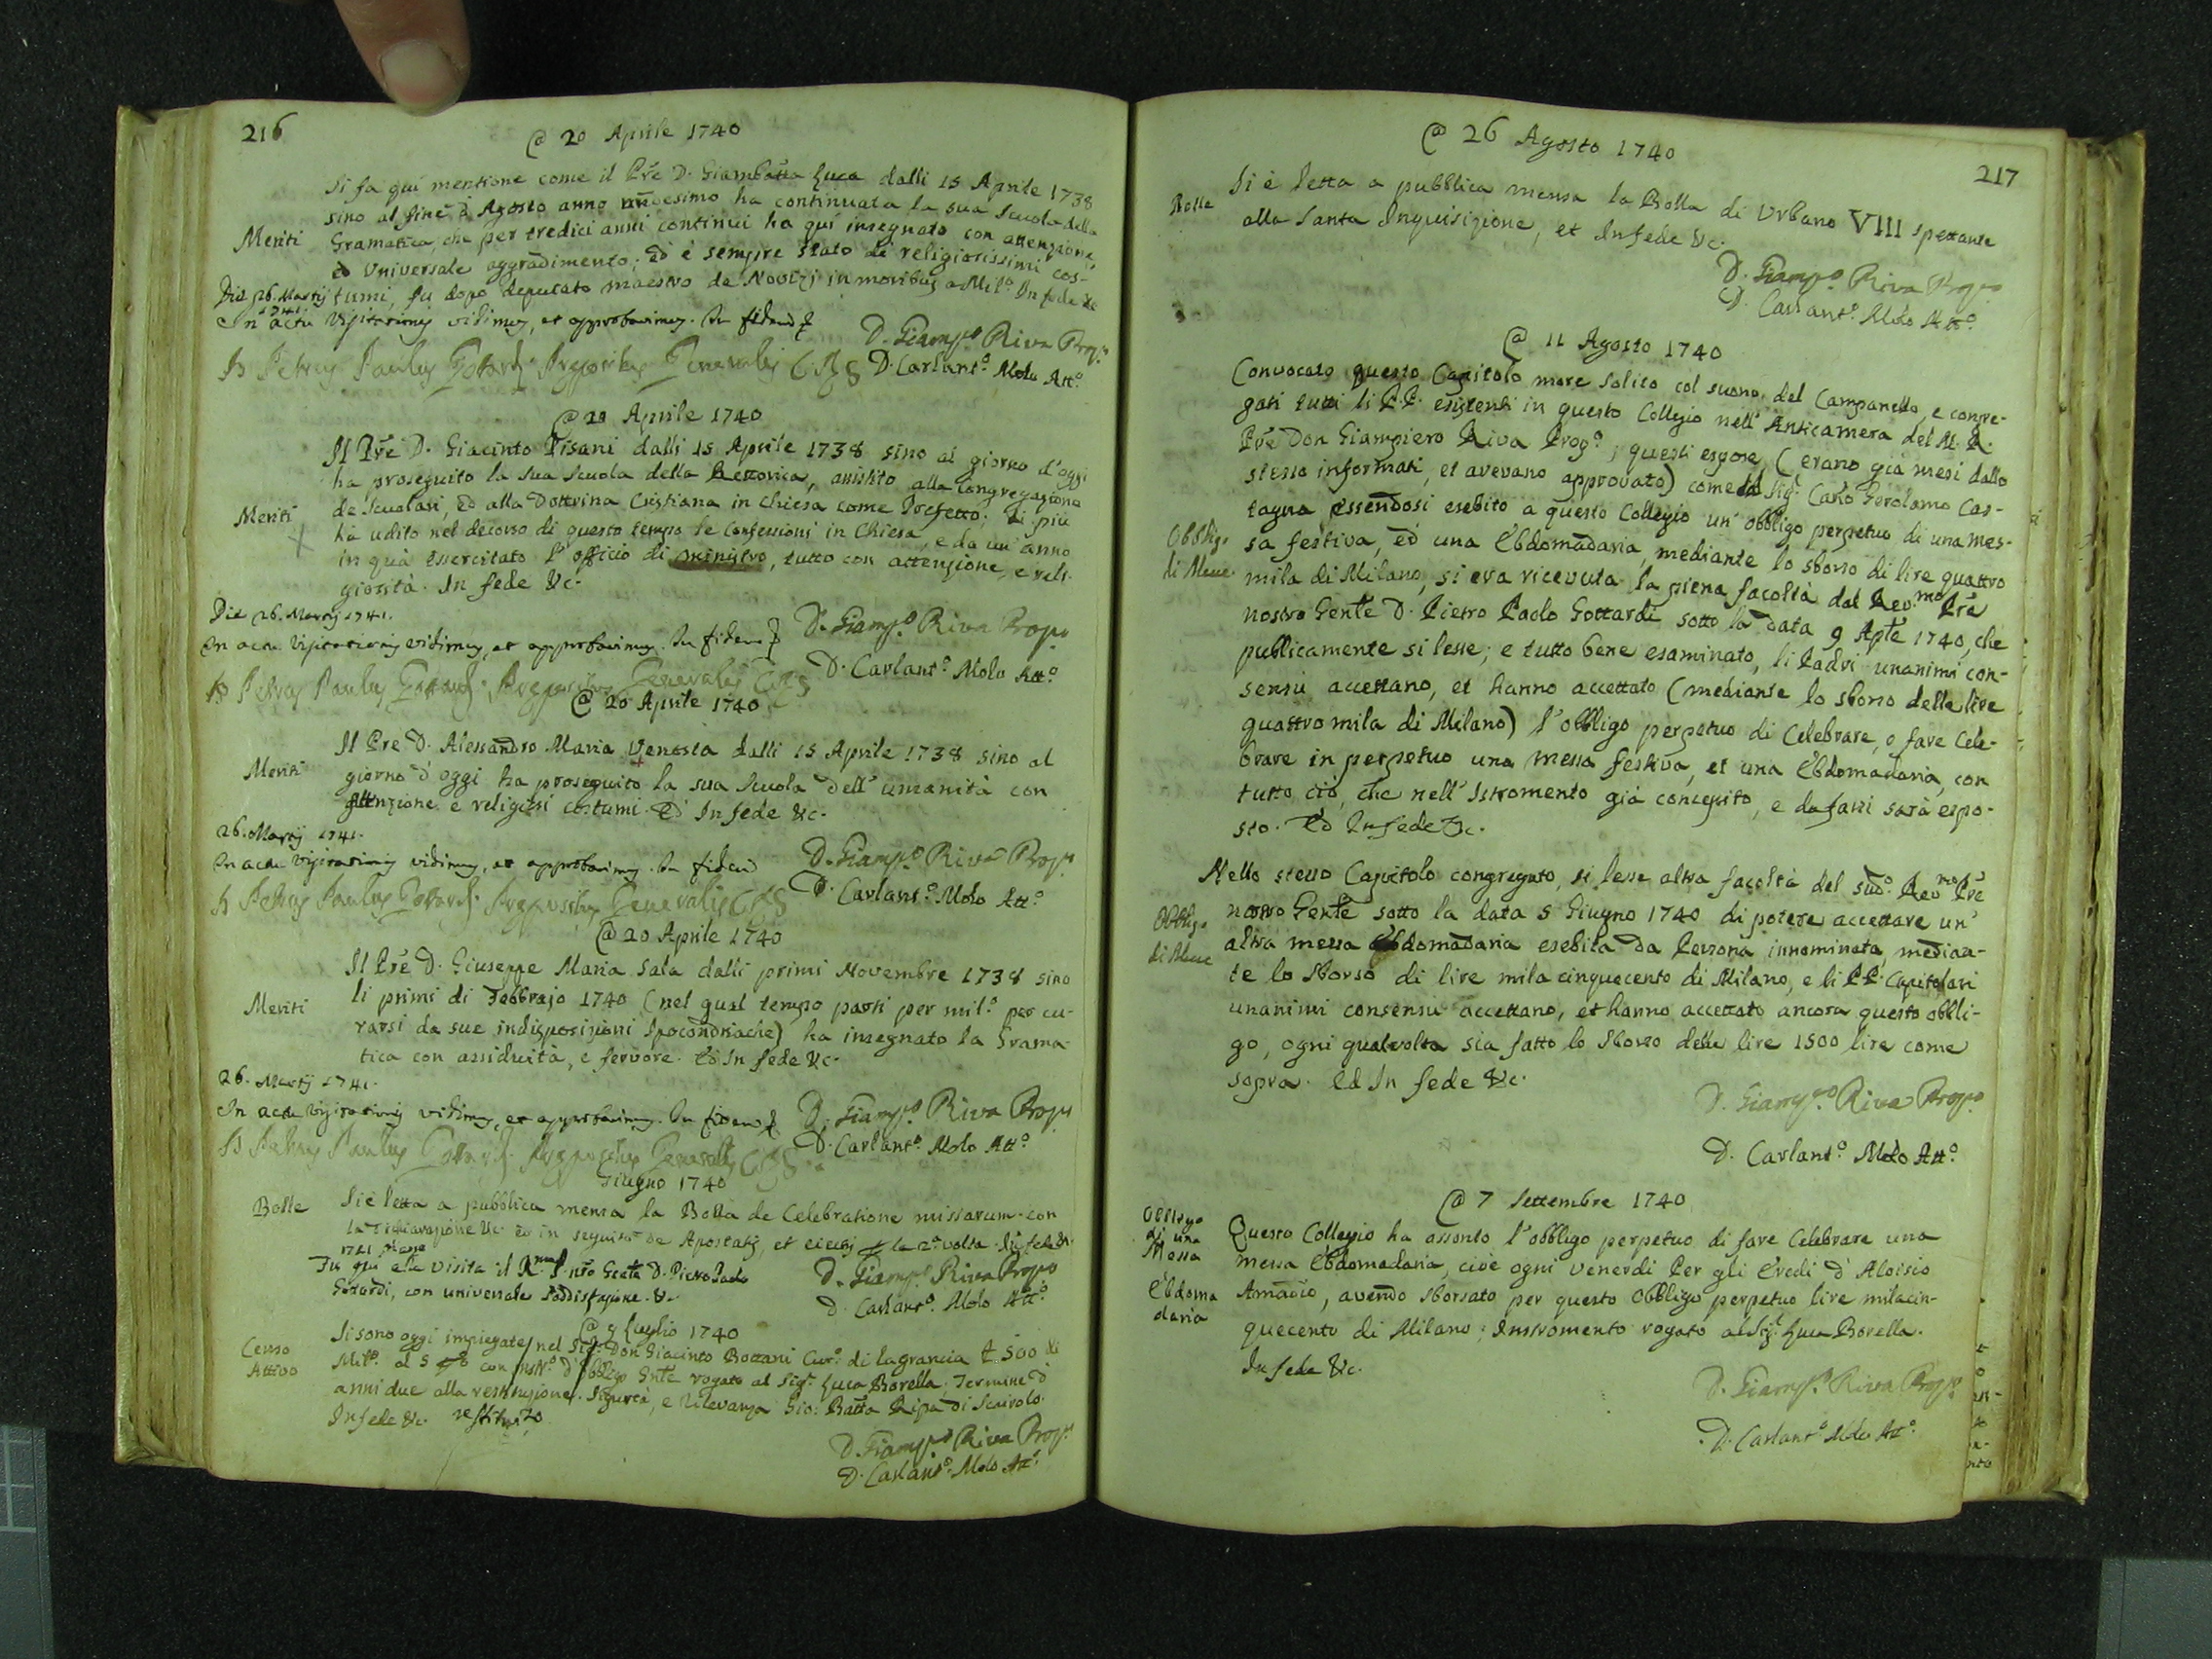 216
@ 20 Aprile 1740
Si fa quì mentione come il Pre D. Giambatta Luca dalli 15 Aprile 1738
sino al fine d'Agosto anno ha continuata la sua Scuola della
Meriti
Gramatica, che per tredici anni continui ha quì insegnato con attenzione,
ed Universale aggradimento; ed è sempre stato di religiosissimi cos-
tumi, fu dopo deputato maestro de Novizj in moribus a Mil.o In fede &c
Die 26. Martij 1741.
In actu Visitationis vidimus, et approbavimus. In fidem
D. Giamp.o Riva Prop.o
D. Petrus Paulus Gottardi Prepositus Generalis CRS
D. Carlant.o Molo Att.o
@ 20 Aprile 1740
Il Pre D. Giacinto Pisani dalli 15 Aprile 1738 sino al giorno d'oggi
ha proseguito la sua Scuola della Rettorica, assistito alla Congregazione
de Scuolari, ed alla Dottrina Cristiana in Chiesa come Prefetto: di più
Meriti
ha udito nel decorso di questo tempo le Confessioni in Chiesa, e da un' anno
in quà essercitato l'officio di ministro, tutto con attenzione, e reli-
giosità. In fede &c.
Die 26. Martij 1741.
In actu Visitationis vidimus, et approbavimus. In fidem
D. Giamp.o Riva Prop.o
D. Petrus Paulus Gottardi Prepositus Generalis CRS
D. Carlant.o Molo Att.o
@ 20 Aprile 1740
Il Pre D. Alessandro Maria Venosta dalli 15 Aprile 1738 sino al
Meriti
giorno d'oggi ha proseguito la sua Scuola dell'umanità con
attenzione e religiosi costumi. Ed In fede &c.
26. Martij 1741.
In actu Visitationis vidimus, et approbavimus. In fidem
D. Giamp.o Riva Prop.o
D. Petrus Paulus Gottardi Prepositus Generalis CRS
D. Carlant.o Molo Att.o
@ 20 Aprile 1740
Il Pre D. Giuseppe Maria Sala dalli primi Novembre 1738 sino
Meriti
li primi di Febbrajo 1740 (nel qual tempo partì per mil.o per cu-
rarsi da sue indisposizioni Ipocondriache) ha insegnato la Grama-
tica con assiduità, e fervore. Ed In fede &c.
26. Martij 1741.
In actu Visitationis vidimus, et approbavimus. In fidem
D. Giamp.o Riva Prop.o
D. Petrus Paulus Gottardi Prepositus Generalis CRS
D. Carlant.o Molo Att.o
Giugno 1740
Bolle
Si è letta a pubblica mensa la Bolla de Celebratione missarum con
la dichiarazione &c. ed in seguito de Apostatis, et eiectis la 2.a volta. In fede &c.
1741
Fu qui alla visita il R.mo P. nro Gnle D. Pietro Paolo
D. Giamp.o Riva Prop.o
Gottardi, con universale soddisfazione. &c.
D. Carlant.o Molo Att.o
@ 9 Luglio 1740
Censo Attivo
Si sono oggi impiegate nel Sig.r Don Giacinto Bottani Cur.o di lagrancia £ 500 di
Mil.o al 5 con instr.o d'obbligo rogato al Sig.r Luca Borella; Termine d'
anni due alla restituzione. Sigurtà, e rilevanza Gio: Batta Ripa di Scairolo.
In fede &c. restituito
D. Giamp.o Riva Prop.o
D. Carlant.o Molo Att.o
217
@ 26 Agosto 1740
Bolle
Si è letta a pubblica mensa la Bolla di Urbano VIII spettante
alla Santa Inquisizione, et In fede &c.
D. Giamp.o Riva Prop.o
D. Carlant.o Molo Att.o
@ 11 Agosto 1740
Convocato questo Capitolo more solito col suono del Campanello, e congre-
gati tutti li P.P. esistenti in questo Collegio nell'Anticamera del M. R.
Pre Don Giampiero Riva Prop.o, questi espose, (erano già mesi dallo
stesso informati, et avevano approvato) come il Sig.r Carlo Gerolamo Cas-
tagna essendosi esebito a questo Collegio un' obbligo perpetuo di una mes-
Obblig.o di Messe
sa festiva, ed una Ebdomadaria, mediante lo sborso di lire quattro
mila di Milano, si era ricevuta la piena facoltà dal Rev.mo Pre
nostro Genle D. Pietro Paolo Gottardi sotto la data 9 Aple 1740, che
pubblicamente si lesse; e tutto bene esaminato, li Padri unanimi con-
sensu accettano, et hanno accettato (mediante lo sborso delle lire
quattro mila di Milano) l'obbligo perpetuo di Celebrare, o fare Cele-
brare in perpetuo una messa festiva, et una Ebdomadaria, con
tutto ciò, che nell'Istromento già concepito, e da farsi sarà espo-
sto. Ed In fede &c.
Nello stesso Capitolo congregato, si lesse altra facoltà del sud.o Rev.mo Pre
Obblig.o di Messe
nostro Genle sotto la data 5 Giugno 1740 di potere accettare un'
altra messa Ebdomadaria esebita da Persona innominata, median-
te lo sborso di lire mila cinquecento di Milano, e li P.P. Capitolari
unanimi consensu accettano, et hanno accettato ancora questo obbli-
go, ogni qualvolta sia fatto lo sborso delle lire 1500 lire come
sopra. Ed In fede &c.
D. Giamp.o Riva Prop.o
D. Carlant.o Molo Att.o
@ 7 Settembre 1740
Obbligo di una Messa Ebdomadaria
Questo Collegio ha assonto l'obbligo perpetuo di fare Celebrare una
messa Ebdomadaria, cioè ogni Venerdì Per gli Eredi d'Aloisio
Amadio, avendo sborsato per questo Obbligo perpetuo lire milacin-
quecento di Milano; Instromento rogato al Sig.r Luca Borella.
In fede &c.
D. Giamp.o Riva Prop.o
D. Carlant.o Molo Att.o